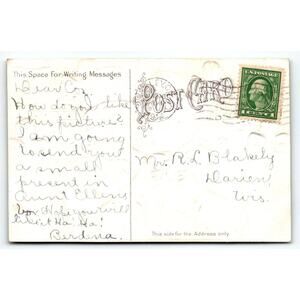 This Space For Writing Messages
POST CARD
U.S. POSTAGE
1 CENT 1
Dear Coz,
How do you like
this picture?
I am going
to send you
a small
present in
Aunt Ellens
box. Hope you will
like it Ha! Ha!
Berdena.
Mr. R. L. Blakely
Darien,
Wis.
This side for the Address only